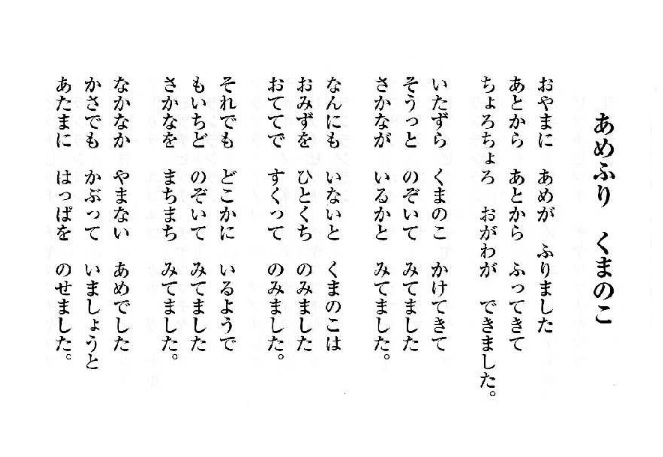 あめふり　くまのこ
おやまに　あめが　ふりました
あとから　あとから　ふってきて
ちょろちょろ　おがわが　できました。
いたずら　くまのこ　かけてきて
そうっと　のぞいて　みてました
さかなが　いるかと　みてました。
なんにも　いないと　くまのこは
おみずを　ひとくち　のみました
おててで　すくって　のみました。
それでも　どこかに　いるようで
もいちど　のぞいて　みてました
さかなを　まちまち　みてました。
なかなか　やまない　あめでした
かさでも　かぶって　いましょうと
あたまに　はっぱを　のせました。